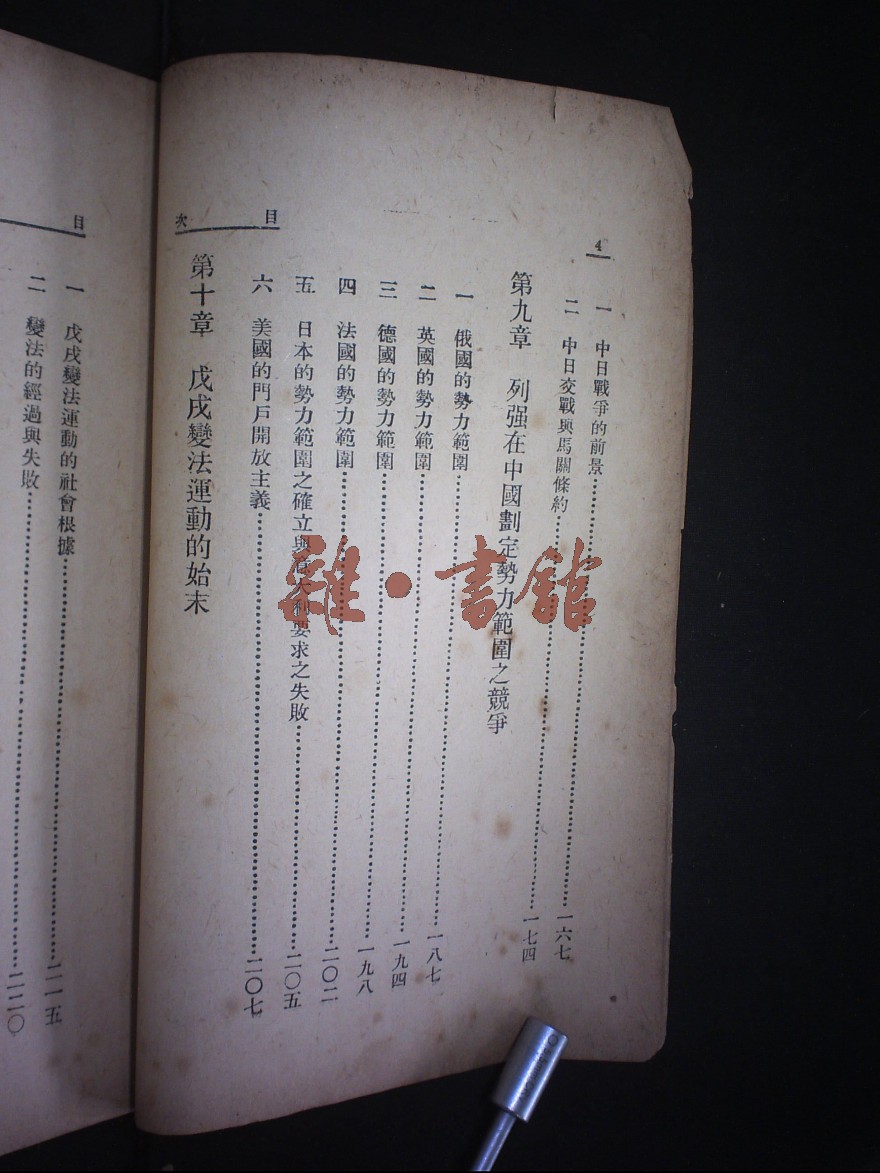 4
目 次
一 中日戰爭的前景 一六七
二 中日交戰與馬關條約 一七四
第九章 列强在中國劃定勢力範圍之競爭
一 俄國的勢力範圍 一八七
二 英國的勢力範圍 一九四
三 德國的勢力範圍 一九八
四 法國的勢力範圍 二〇二
五 日本的勢力範圍之確立與意大利要求之失敗 二〇五
六 美國的門戶開放主義 二〇七
第十章 戊戌變法運動的始末
目
一 戊戌變法運動的社會根據 二一五
二 變法的經過與失敗 二二〇
雜·書館